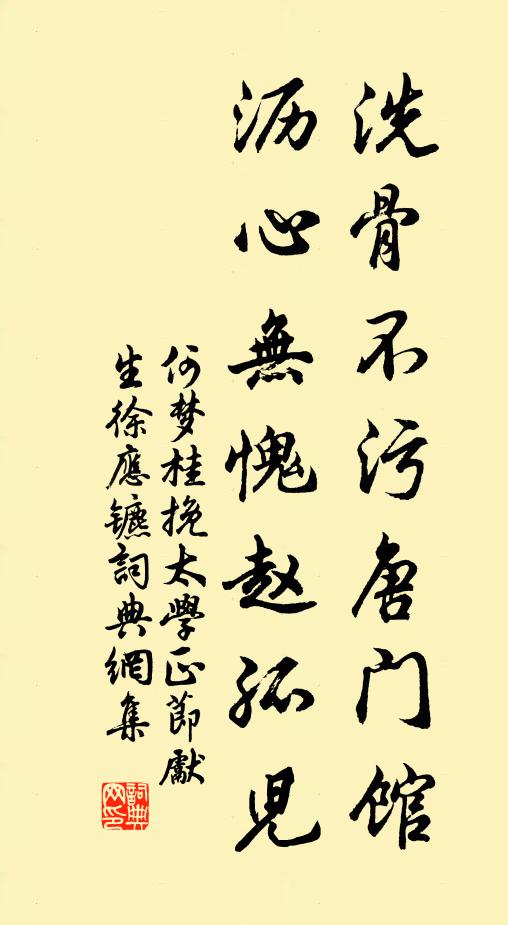 洗骨不污唐门馆
沥心無愧赵孤児
何梦桂挽太学正節獻
生徐應镳詞典網集
詞典网印